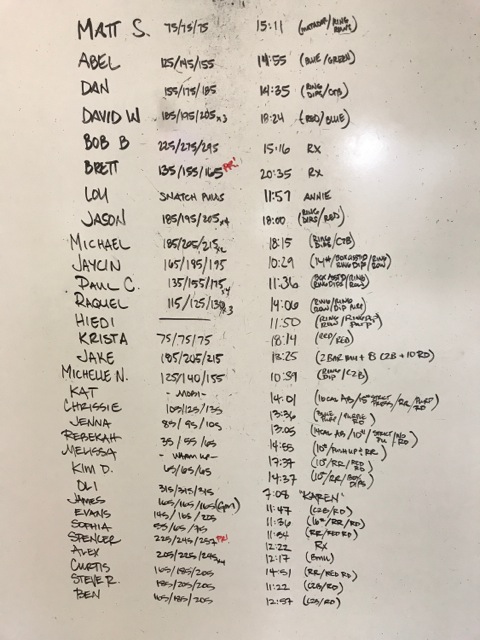 MATT S. 75/75/75 15:11 (MATADOR/RING ROWS)
ABEL 125/145/155 14:55 (BLUE/GREEN)
DAN 155/175/185 14:35 (RING DIPS/CTB)
DAVID W 185/195/205x3 18:24 (RED/BLUE)
BOB B 225/275/295 15:16 RX
BRETT 135/155/165 PR! 20:35 RX
LOU SNATCH PULLS 11:57 ANNIE
JASON 185/195/205x4 18:00 (RING DIPS/RED)
MICHAEL 185/205/215 18:15 (RING DIPS/CTB)
JAYCIN 165/185/195 10:29 (14#/BOX ASST'D/RING RING DIP/ROW)
PAUL C. 135/155/175 11:36 (BOX ASST'D/RING RING DIPS/ROW)
RAQUEL 115/125/130x3 14:06 (RING/RING ROW/DIP)
HIEDI 11:50 (RING/RING ROW)
KRISTA 75/75/75 18:14 (RED/RED)
JAKE 185/205/215 13:25 (2 BAR MU + 8 C2B + 10 RD)
MICHELLE N. 125/140/155 10:59 (RING DIP/C2B)
KAT - MOBI - 14:01
CHRISSIE 105/125/135 13:36
JENNA 85/95/105 13:05
REBEKAH 35/55/65 14:55 (10#/PUSHUP + RR)
MELISSA - WARM UP - 17:37 (10#/RR/RED RD)
KIM D. 65/65/65 14:37 (10#/RR/BOX DIPS)
DLI 315/315/315 7:08 "KAREN"
JAMES 165/165/165 11:47 (C2B/RD)
EVANS 145/185/205 11:36 (16#/RR/RD)
SOPHIA 55/65/75 11:54 (RR/RED RD)
SPENCER 225/245/257 PR! 12:22 RX
ALEX 205/225/245 12:17
CURTIS 165/185/205 14:51 (RR/RED RD)
STEVE R. 185/205/205 11:22 (C2B/RD)
BEN 165/185/205 12:57 (C2B/RD)